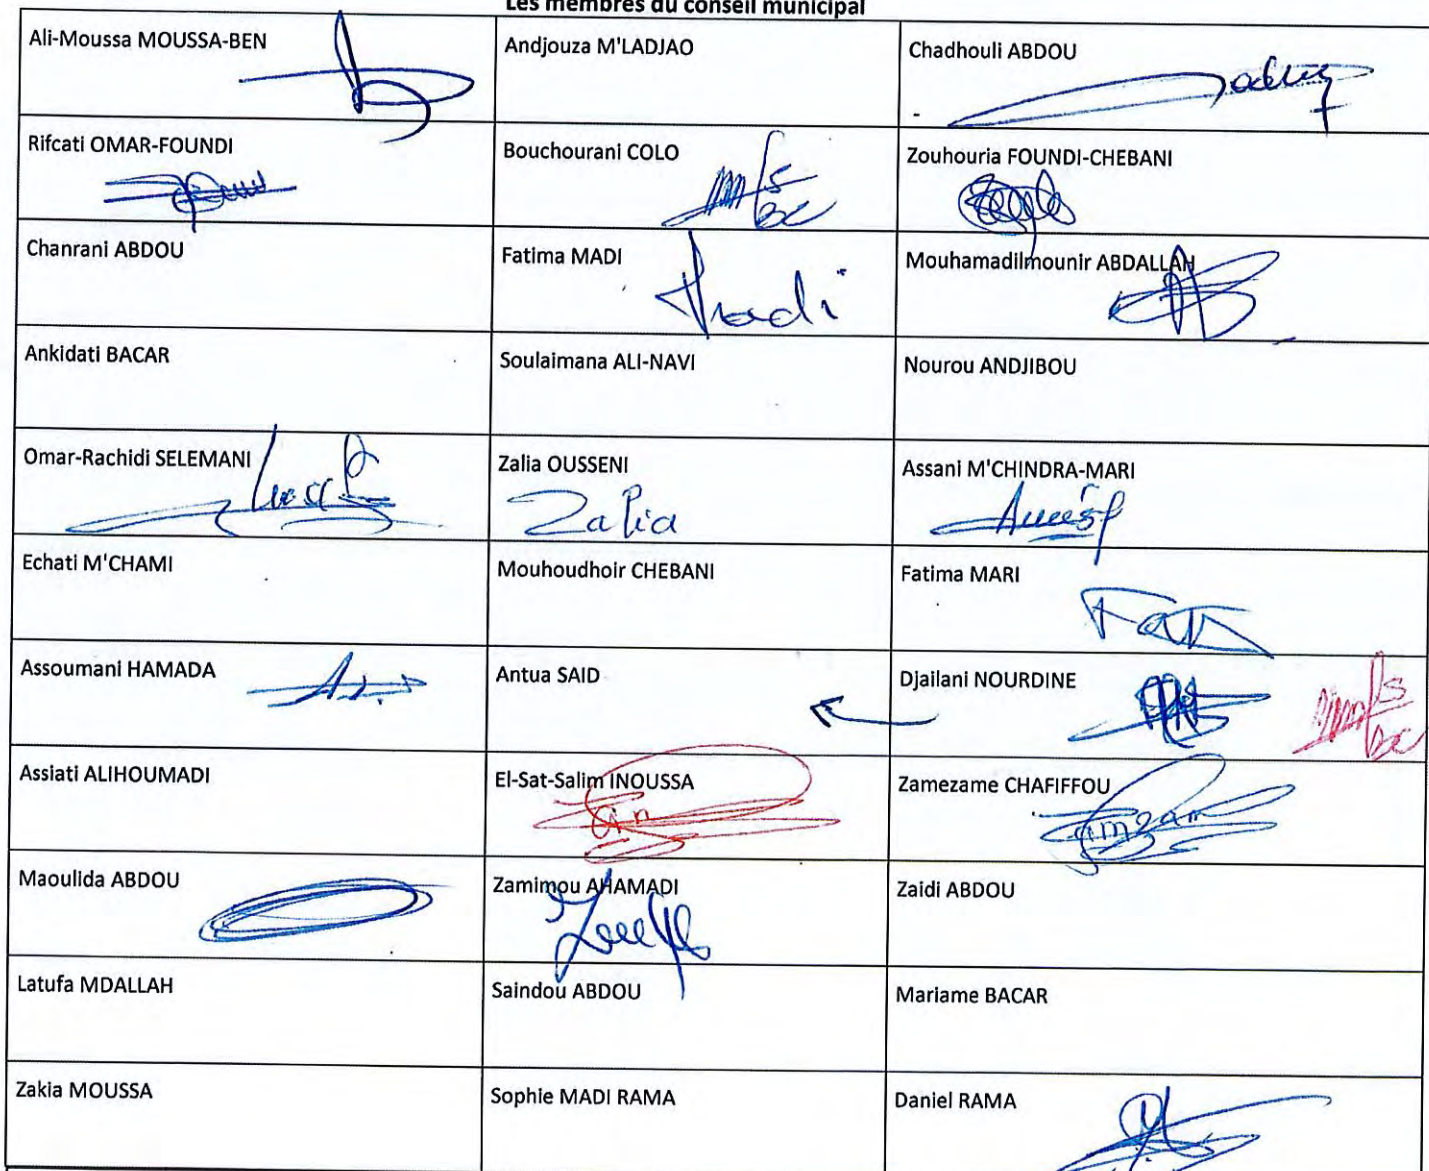 Les membres du conseil municipal
Ali-Moussa MOUSSA-BEN
Andjouza M'LADJAO
Chadhouli ABDOU
Rifcati OMAR-FOUNDI
Bouchourani COLO
Zouhouria FOUNDI-CHEBANI
Chanrani ABDOU
Fatima MADI
Madi
Mouhamadilmounir ABDALLAH
Ankidati BACAR
Soulaimana ALI-NAVI
Nourou ANDJIBOU
Omar-Rachidi SELEMANI
Zalia OUSSENI
Zalia
Assani M'CHINDRA-MARI
Echati M'CHAMI
Mouhoudhoir CHEBANI
Fatima MARI
Assoumani HAMADA
Antua SAID
Djailani NOURDINE
Assiati ALIHOUMADI
El-Sat-Salim INOUSSA
Zamezame CHAFIFFOU
Maoulida ABDOU
Zamimou AHAMADI
Zaidi ABDOU
Latufa MDALLAH
Saindou ABDOU
Mariame BACAR
Zakia MOUSSA
Sophie MADI RAMA
Daniel RAMA